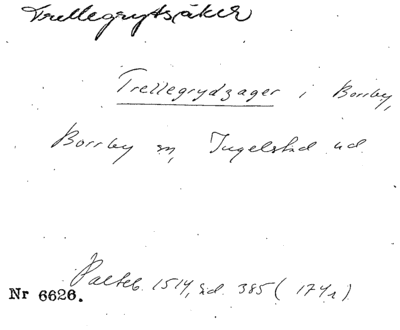 Trellegrytsåker
Trellegrydzager i Borrby,
Borrby sn, Ingelstad hd.
Palteb. 1514, sd. 385 (174r)
Nr 6626.